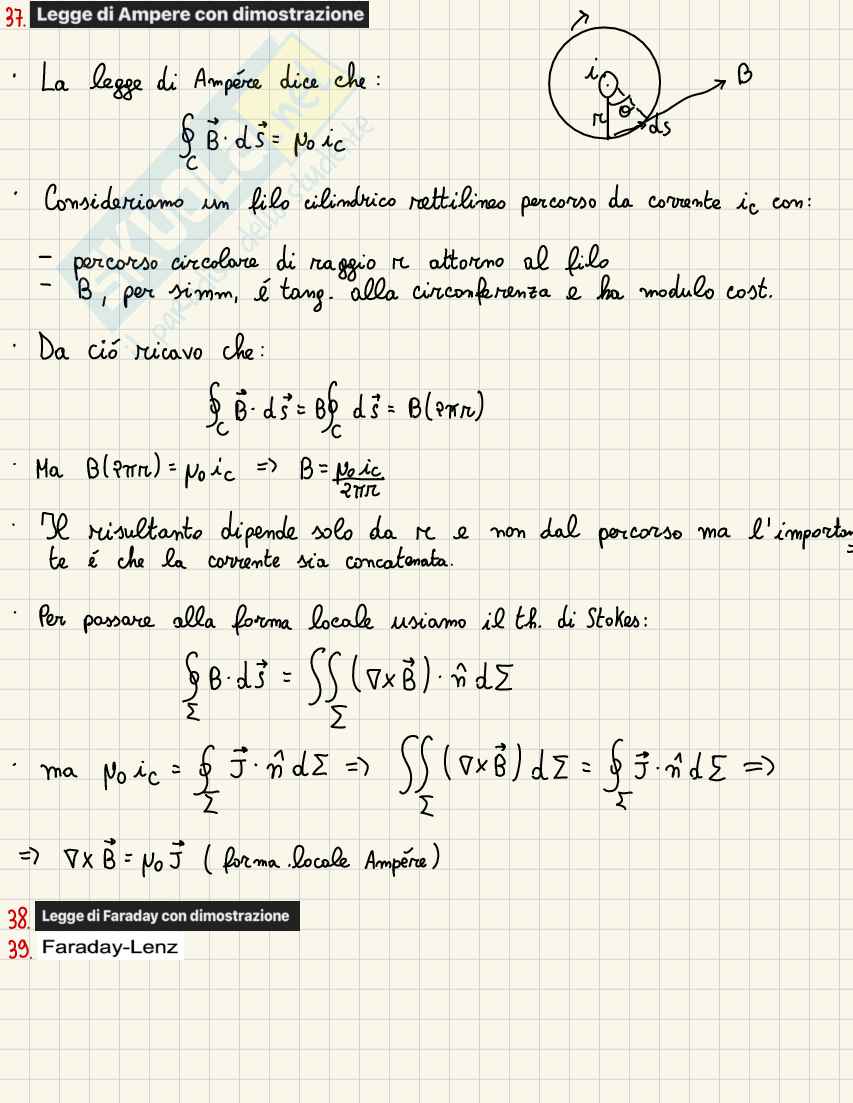 37. Legge di Ampere con dimostrazione
i B r θ ds
· La legge di Ampére dice che:
∮_C B⃗ · ds⃗ = μ₀ i_C
· Consideriamo un filo cilindrico rettilineo percorso da corrente i_C con:
- percorso circolare di raggio r attorno al filo
- B, per simm, é tang. alla circonferenza e ha modulo cost.
· Da ció ricavo che:
∮_C B⃗ · ds⃗ = B∮_C ds⃗ = B(2πr)
· Ma B(2πr) = μ₀ i_C => B = μ₀ i_C / 2πr
· Il risultanto dipende solo da r e non dal percorso ma l'importan-
te é che la corrente sia concatenata.
· Per passare alla forma locale usiamo il th. di Stokes:
∮_Σ B · ds⃗ = ∬_Σ (∇×B⃗) · n̂ dΣ
· ma μ₀ i_C = ∮_Σ J⃗ · n̂ dΣ => ∬_Σ (∇×B⃗) dΣ = ∮_Σ J⃗ · n̂ dΣ =>
=> ∇×B⃗ = μ₀ J⃗ (forma locale Ampére)
38. Legge di Faraday con dimostrazione
39. Faraday-Lenz
SKUOLA.net
il paradiso dello studente